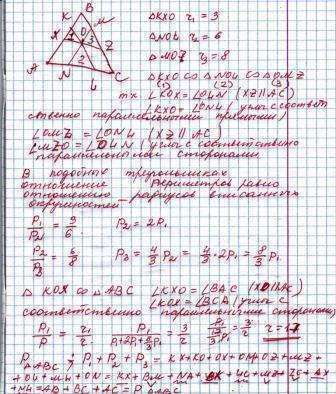 B
K M
X O Z
1 3
2
A N L C
ΔKXO r₁ = 3
ΔNOL r₂ = 6
ΔMOZ r₃ = 8
ΔKXO ∽ ΔNOL ∽ ΔOMZ
(1) (2) (3)
тк ∠KOX = ∠OLN (XZ || AC)
∠KXO = ∠ONL (углы с соответ
ственно параллельными прямыми)
∠OMZ = ∠ONL (XZ || AC)
∠MZO = ∠OLN (углы с соответственно
параллельными сторонами
В подобных треугольниках
отношение периметров равно
отношению радиусов вписанных
окружностей
P₁/P₂ = 3/6 P₂ = 2P₁
P₂/P₃ = 6/8 P₃ = 4/3 P₂ = 4/3 · 2P₁ = 8/3 P₁
Δ KOX ∽ ΔABC ∠KXO = ∠BAC (XO||AC)
∠KOX = ∠BCA (углы с
соответственно параллельными сторонами)
P₁/P = r₁/r r = 17
P ΔABC = P₁ + P₂ + P₃ = KX + KO + OX + OM + OZ + MZ +